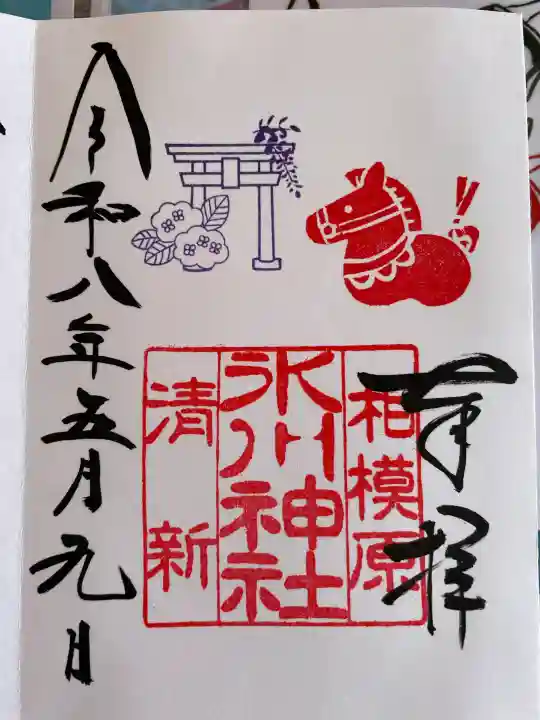 奉拝
相模原
氷川神社
清新
令和八年五月九日